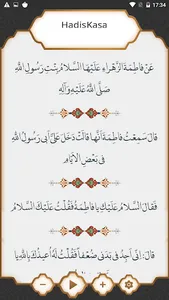 17:34
HadisKasa
عَنْ فَاطِمَةَ الزَّهْرَاءِ عَلَيْهَا السَّلَامُ بِنْتِ رَسُولِ اللَّهِ
صَلَّى اللَّهُ عَلَيْهِ وَآلِهِ
قَالَ سَمِعْتُ فَاطِمَةَ أَنَّهَا قَالَتْ دَخَلَ عَلَيَّ أَبِي رَسُولُ اللَّهِ
فِي بَعْضِ الْأَيَّامِ
فَقَالَ السَّلَامُ عَلَيْكِ يَا فَاطِمَةُ فَقُلْتُ عَلَيْكَ السَّلَامُ
قَالَ: إِنِّي أَجِدُ فِي بَدَنِي ضَعْفًا فَقُلْتُ لَهُ أُعِيذُكَ بِاللَّهِ يَا